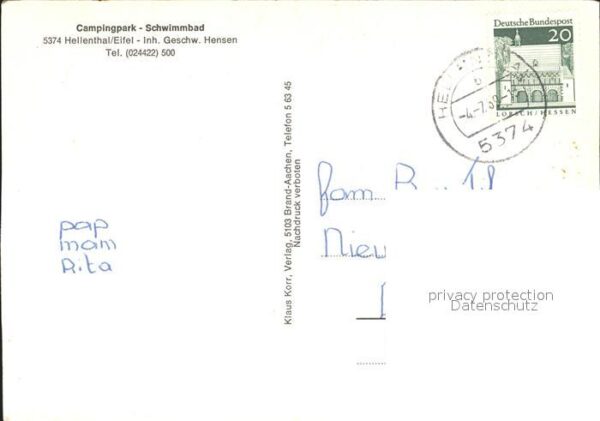 Campingpark - Schwimmbad
5374 Hellenthal/Eifel - Inh. Geschw. Hensen
Tel. (024422) 500
Deutsche Bundespost
20
LORSCH/HESSEN
5374
Klaus Korr, Verlag, 5103 Brand-Aachen, Telefon 5 63 45
Nachdruck verboten
fam
pap
mam
Rita
privacy protection
Datenschutz